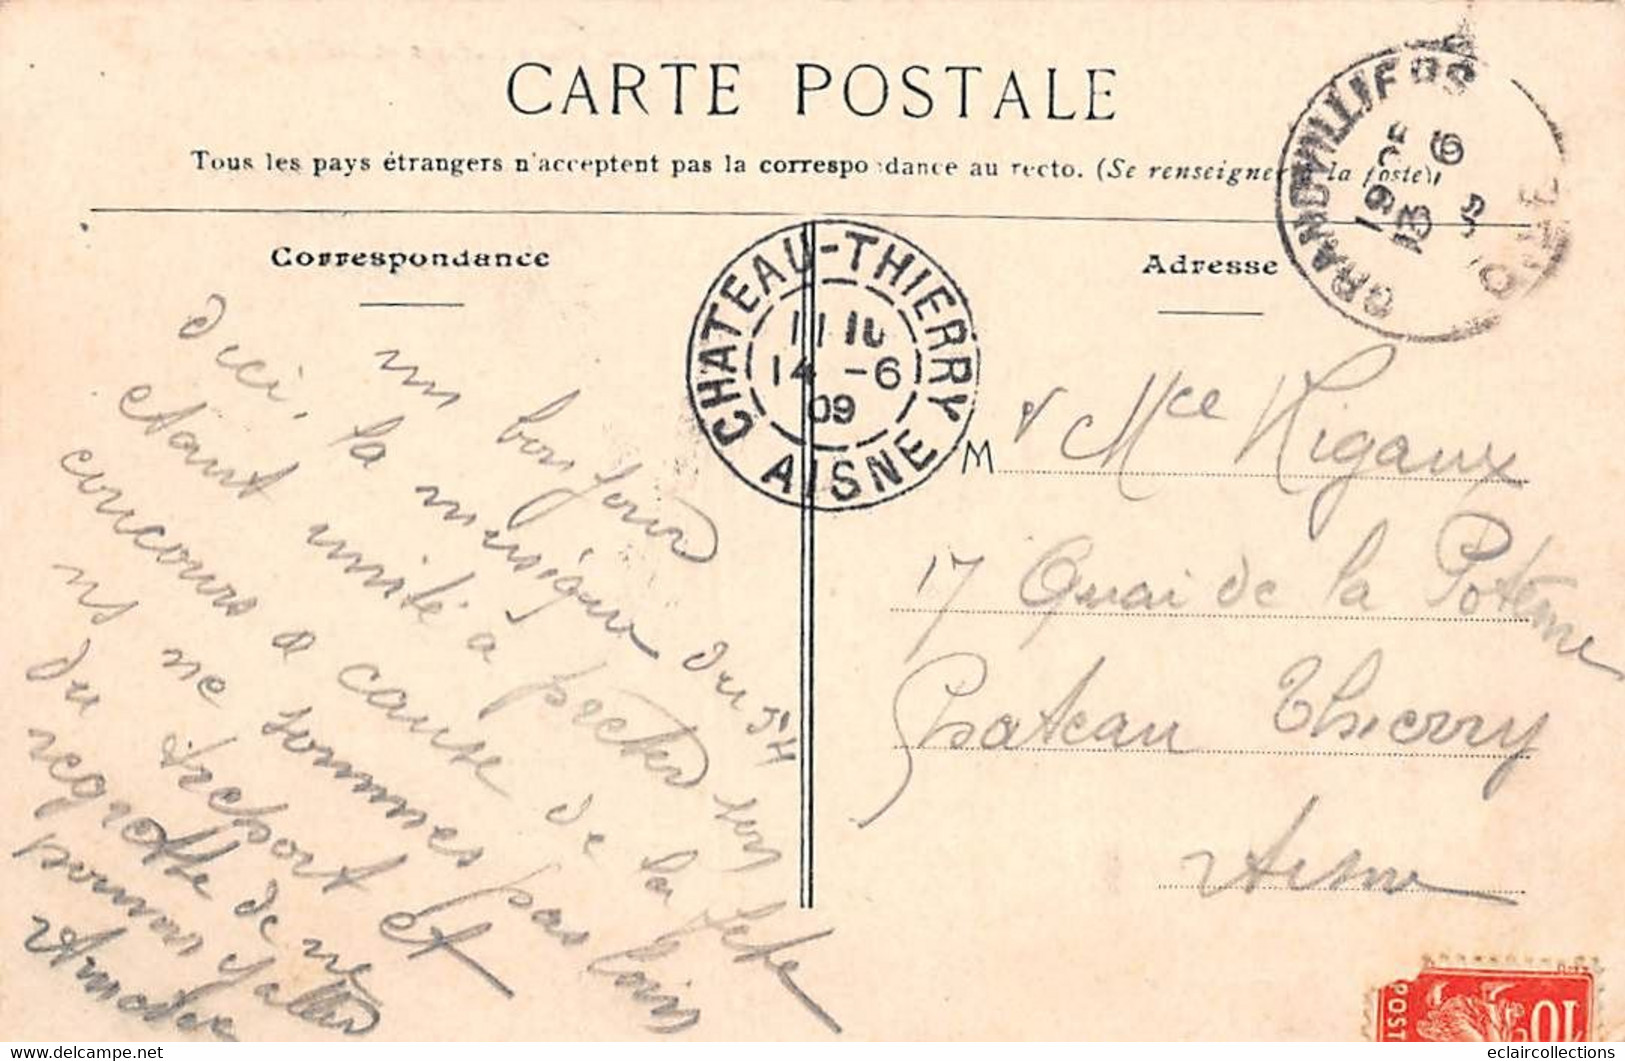 CARTE POSTALE
Tous les pays étrangers n'acceptent pas la correspondance au recto. (Se renseigner à la Poste)
Correspondance
un bonjour
d'ici, la musique du 54
étant invité a preter son
concours a cause de la fete
ns ne sommes pas loin
du treport et
regrette de ne
pouvoir y aller
CHATEAU-THIERRY
11 10
14 -6
09
AISNE
GRANDVILLIERS
OISE
13 6
09
Adresse
M
Mce Rigaux
17 Quai de la Poterne
Chateau Thierry
Aisne
POST
10
eclaircollections